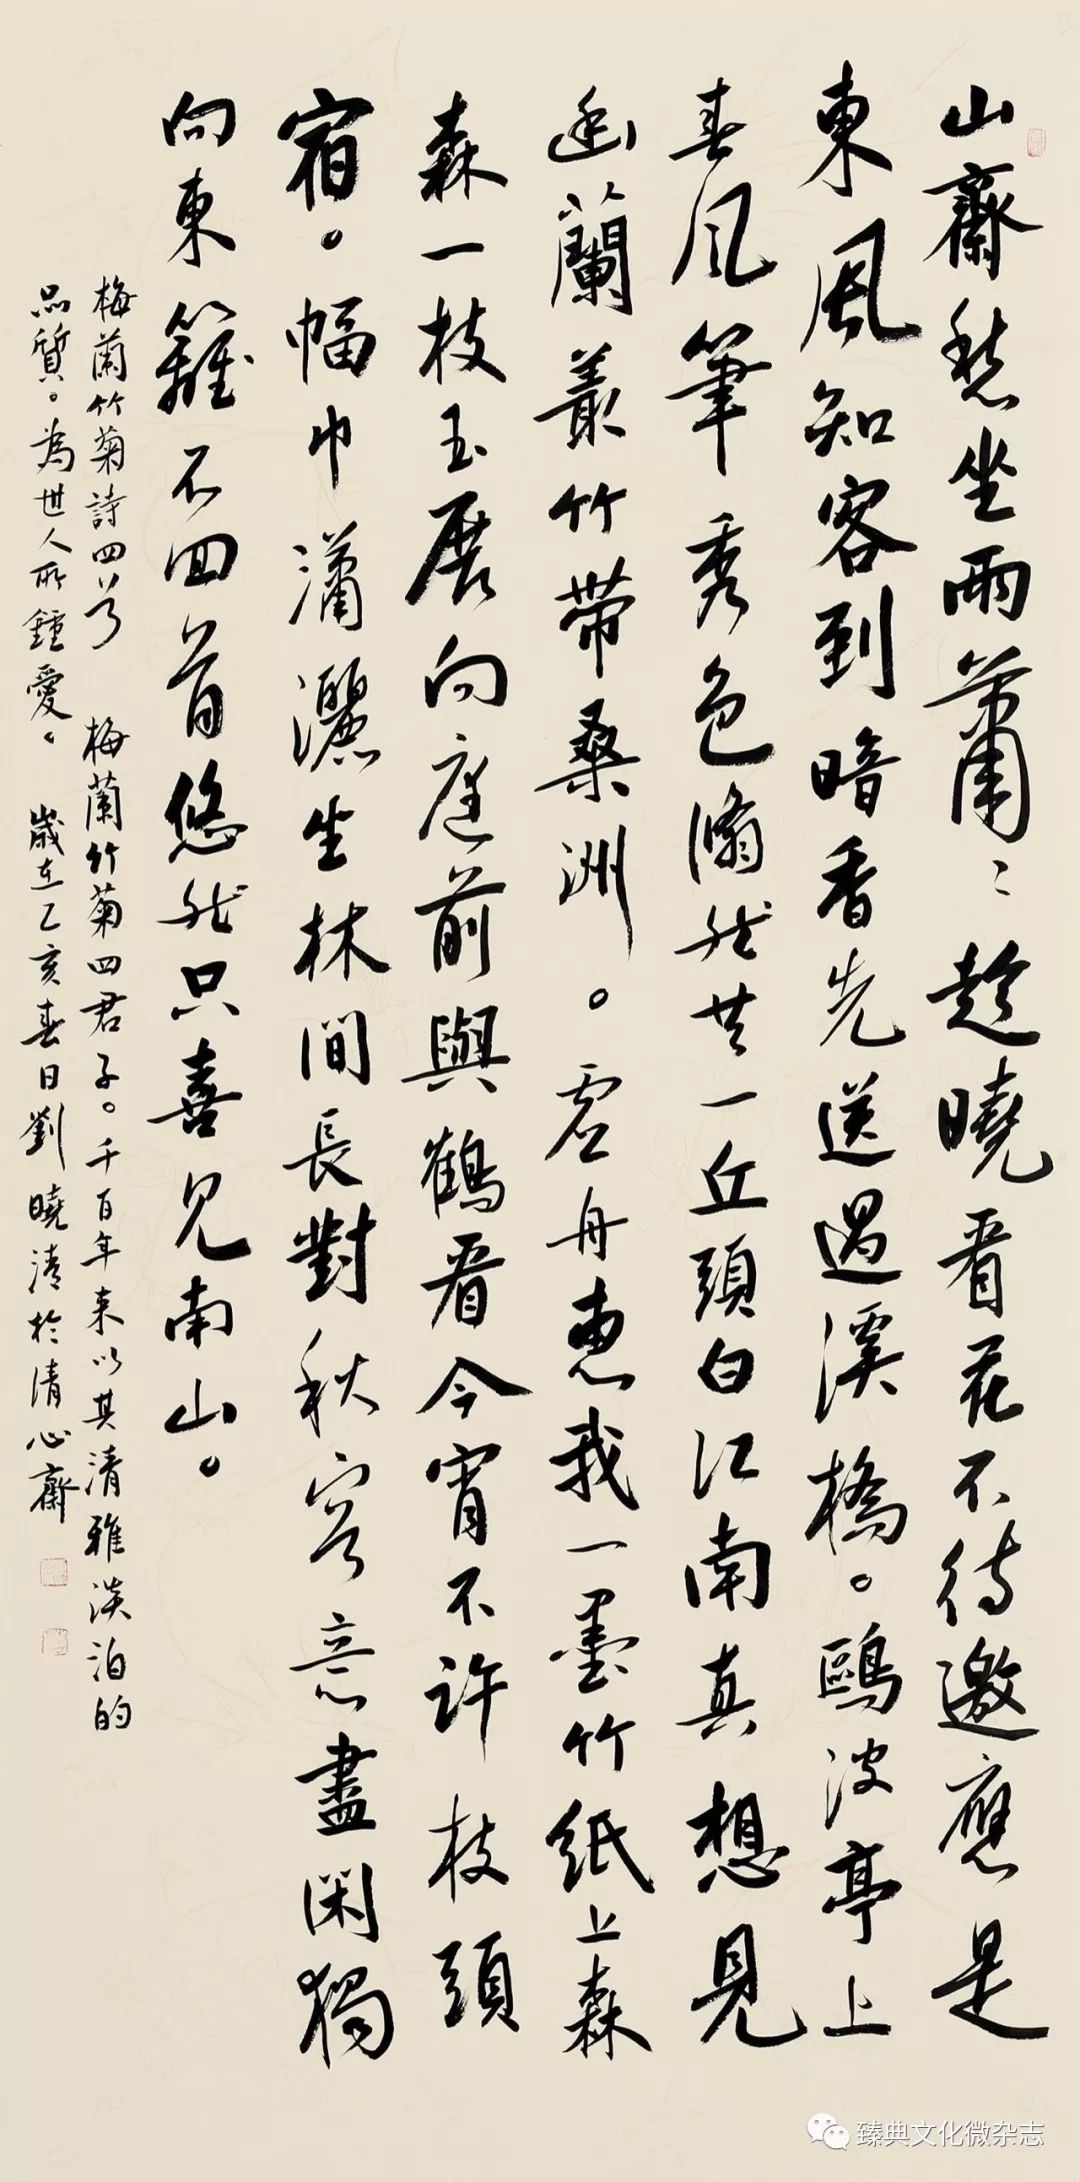 山齋愁坐雨蕭〻趁曉看花不待邀應是
東風知客到暗香先送過溪橋。鷗波亭上
春風筆秀色翛然共一丘頭白江南真想見
幽蘭叢竹帶桑洲。虛舟惠我一墨竹紙上森
森一枝玉展向庭前與鶴看今宵不許枝頭
宿。幅巾瀟灑坐林間長對秋容意盡閑獨
向東籬不回首悠然只喜見南山。
梅蘭竹菊詩四首 梅蘭竹菊四君子。千百年来以其清雅淡泊的
品質。為世人所鍾愛。 歲在乙亥春日劉曉清於清心齋
臻典文化微杂志